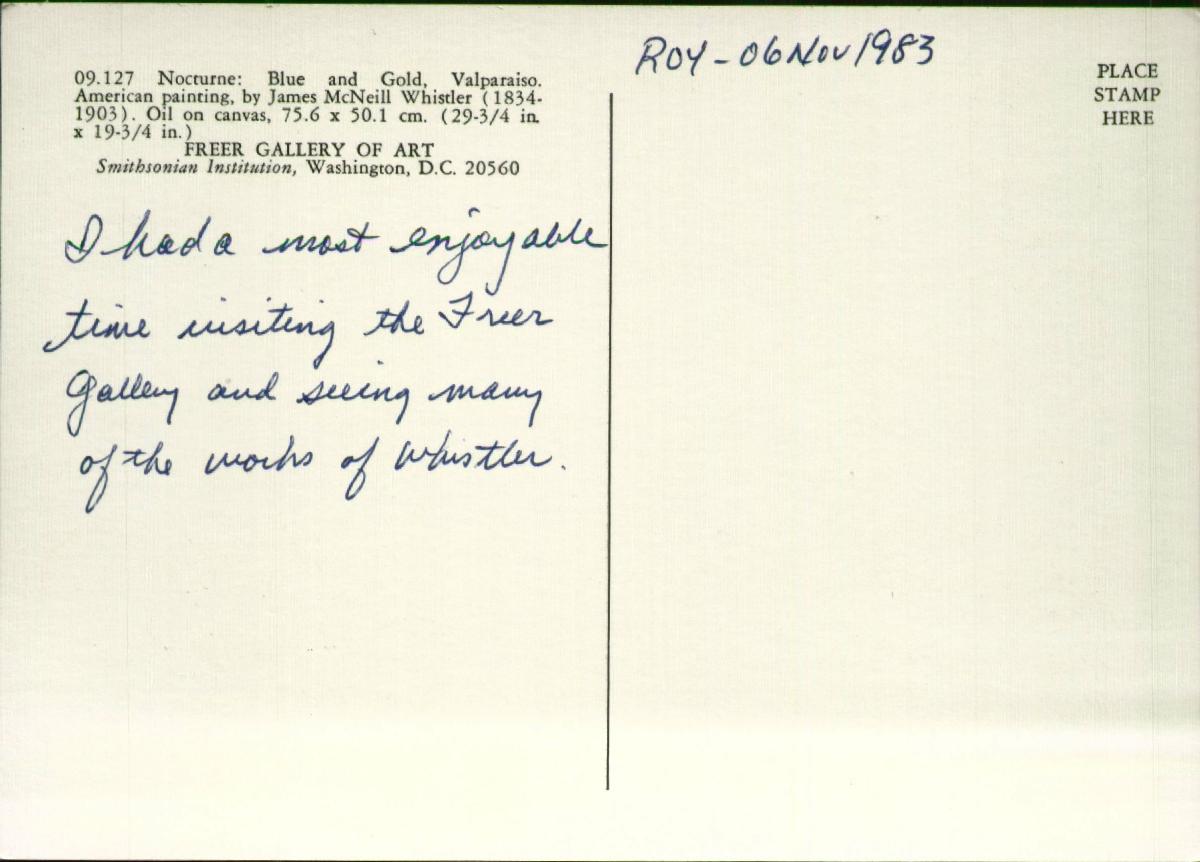 09.127 Nocturne: Blue and Gold, Valparaiso.
American painting, by James McNeill Whistler (1834-
1903). Oil on canvas, 75.6 x 50.1 cm. (29-3/4 in.
x 19-3/4 in.)
FREER GALLERY OF ART
Smithsonian Institution, Washington, D.C. 20560
I had a most enjoyable
time visiting the Freer
Gallery and seeing many
of the works of Whistler.
ROY - 06 Nov 1983
PLACE
STAMP
HERE